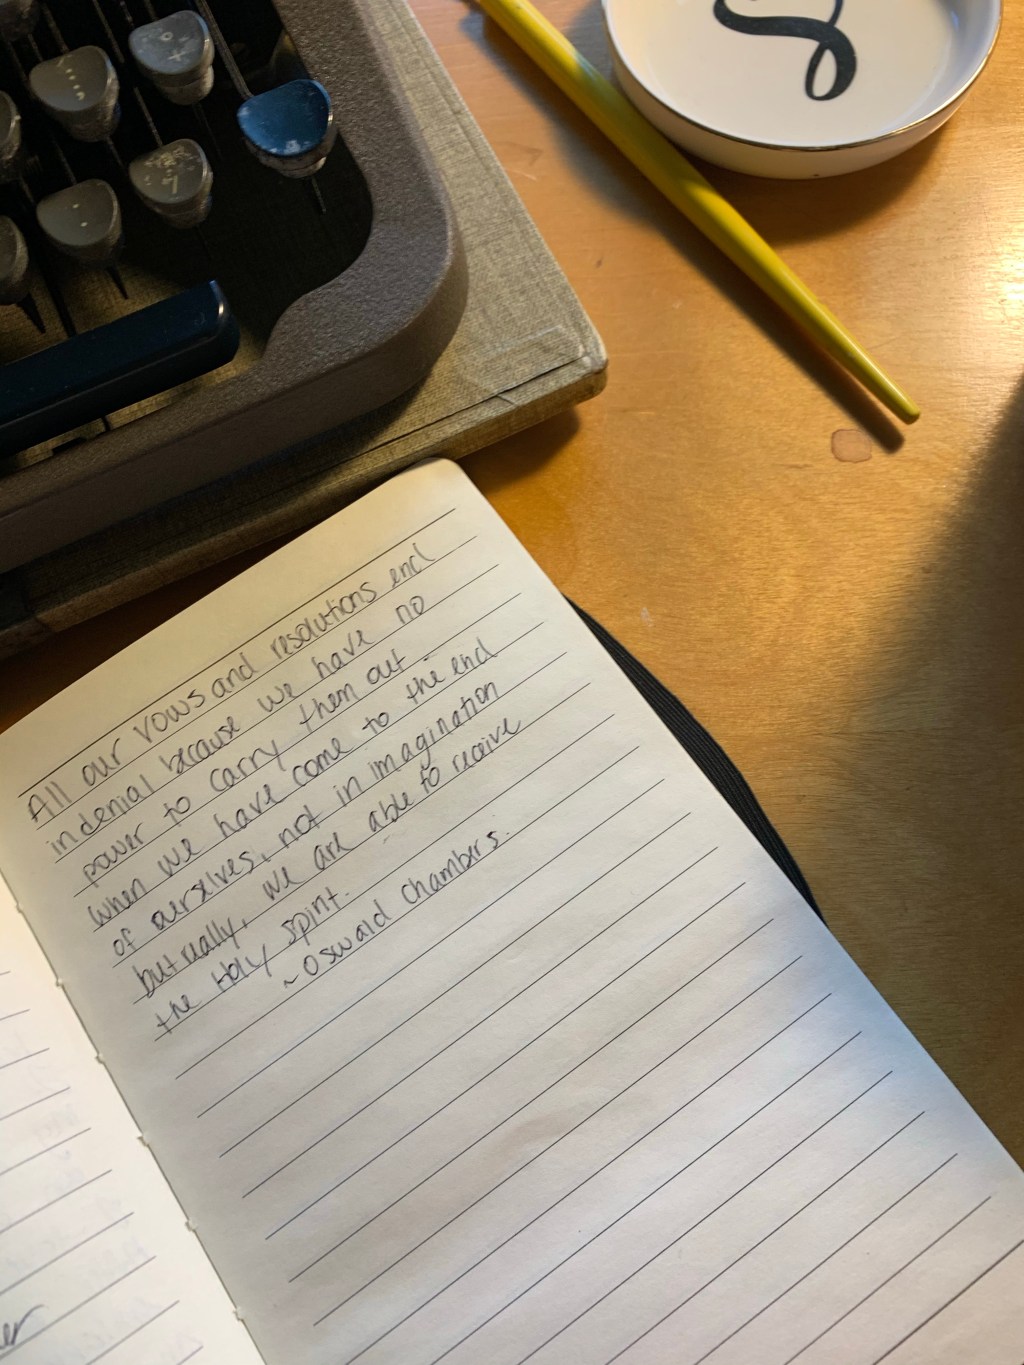 All our vows and resolutions end
in denial because we have no
power to carry them out.
When we have come to the end
of ourselves, not in imagination
but really, we are able to receive
the Holy Spirit.
~Oswald Chambers.
er